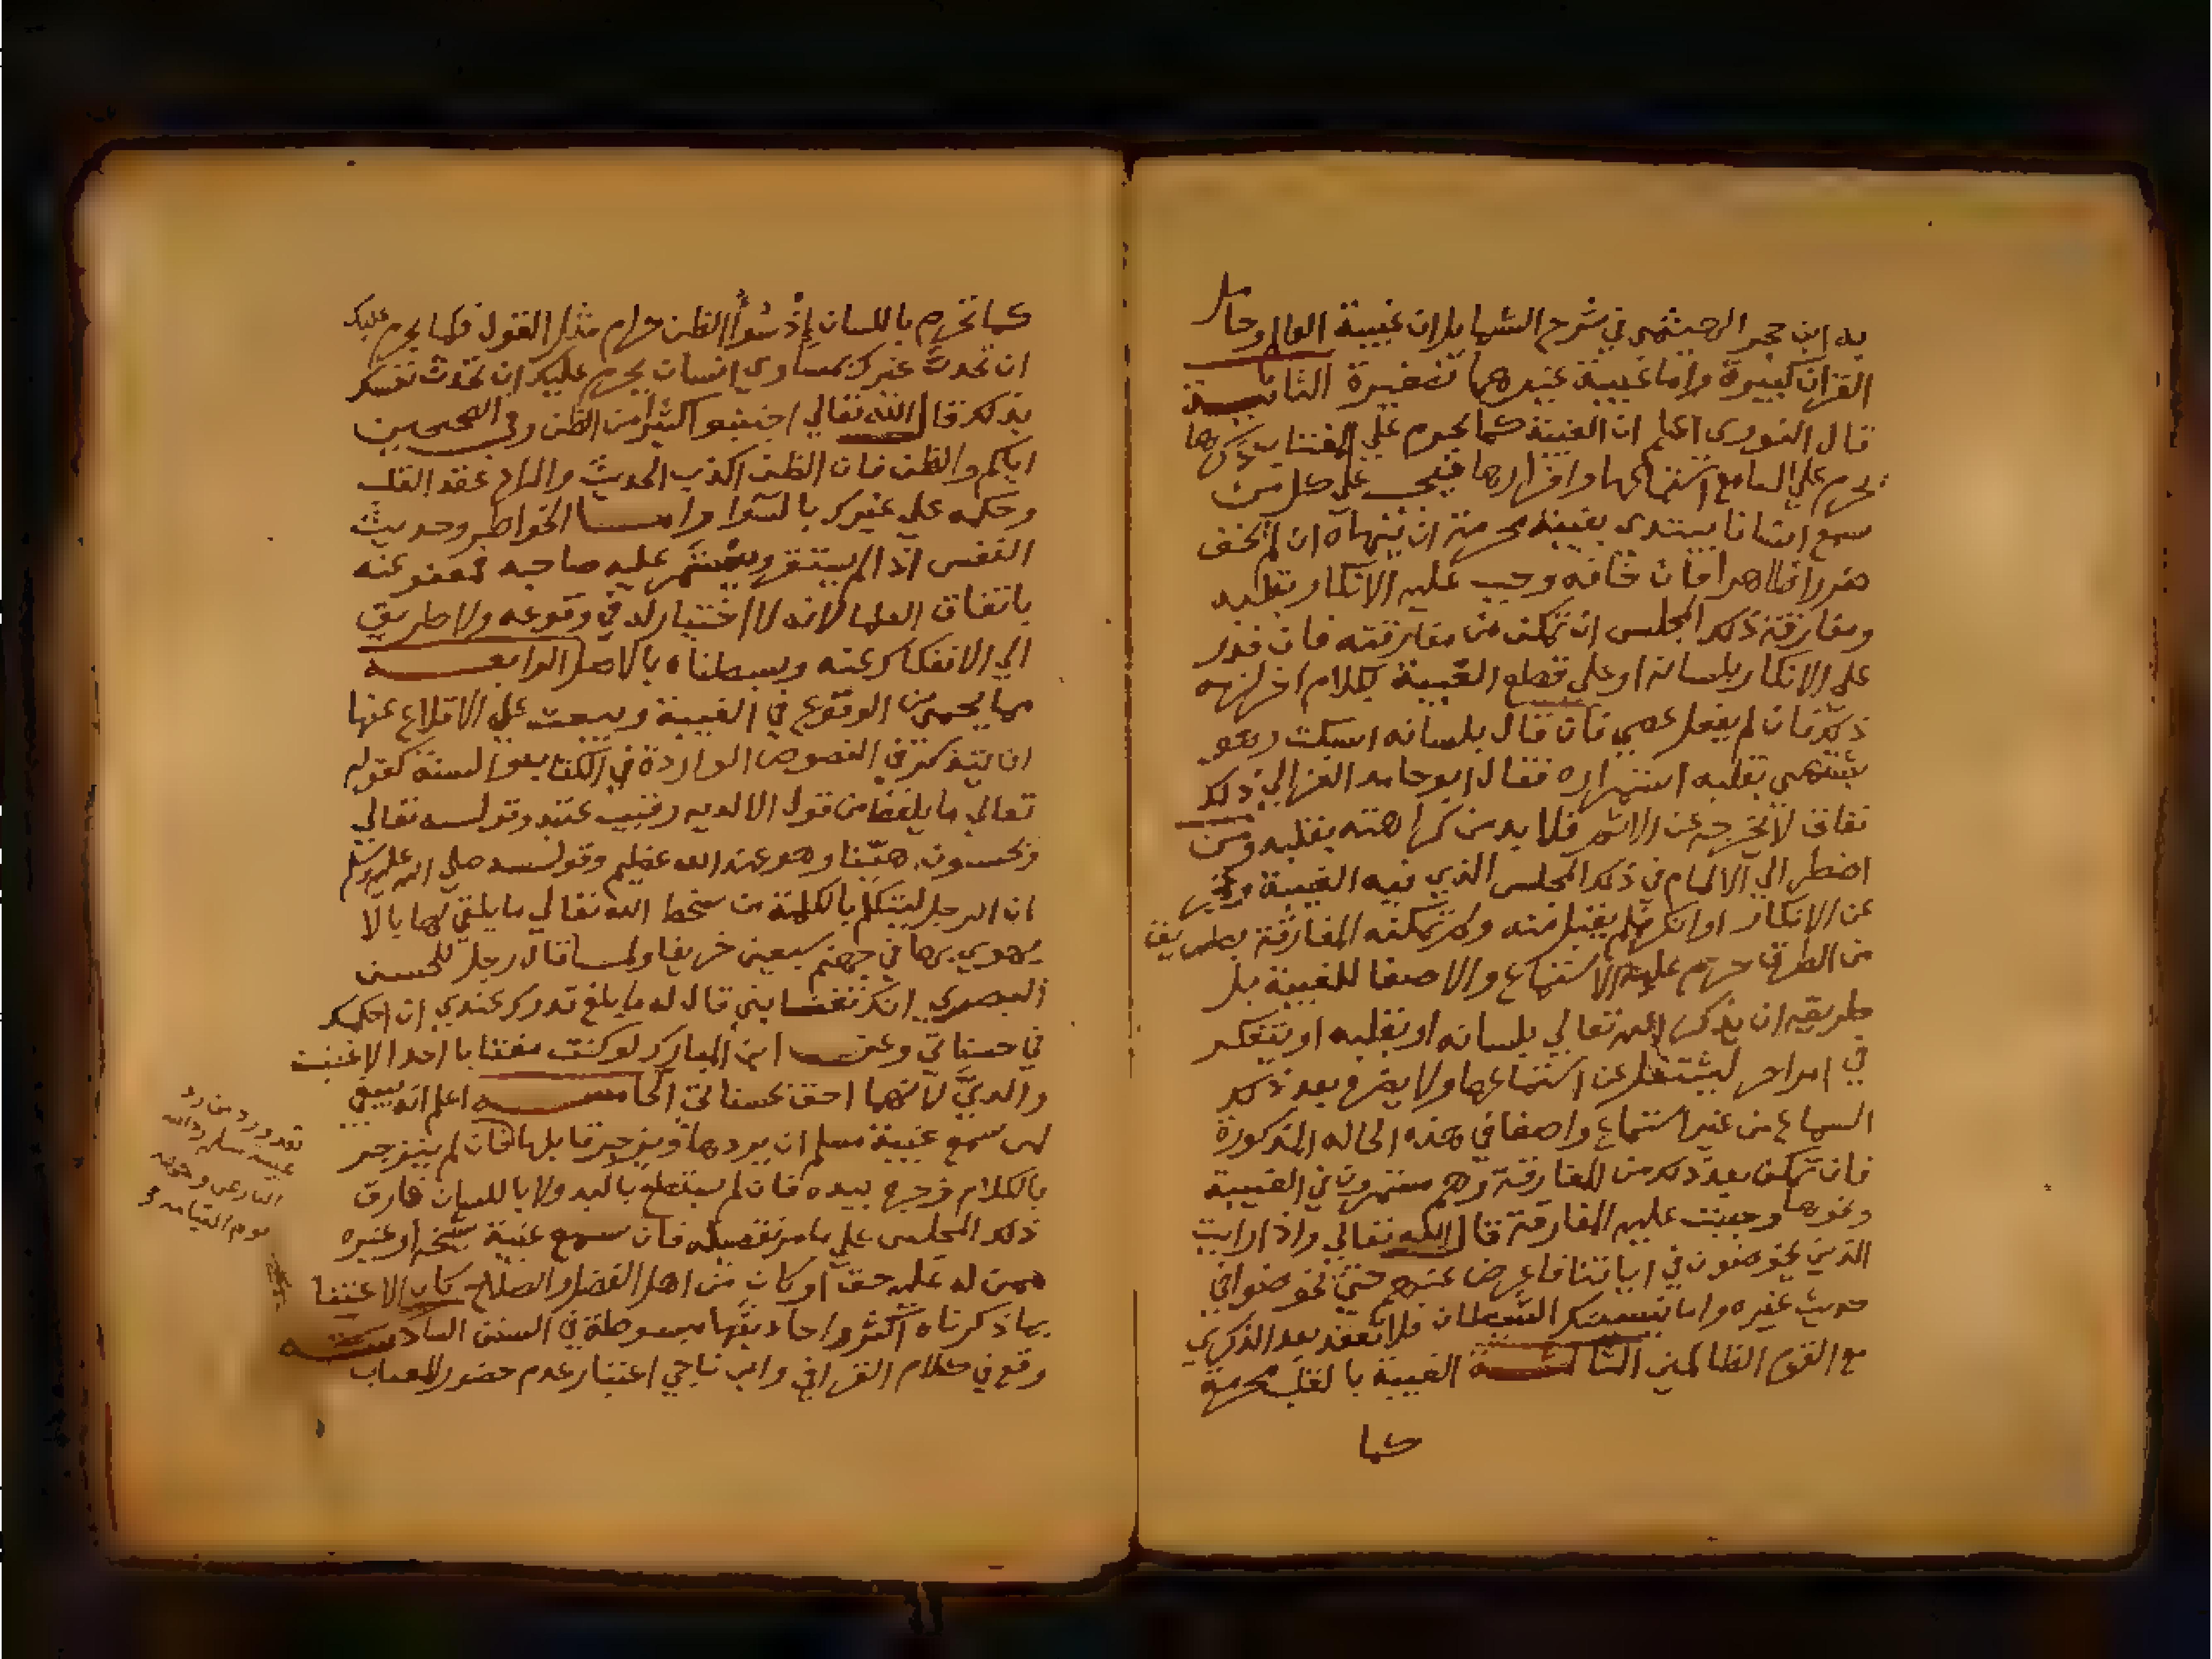 به ابن حجر الهيثمي في شرح الشمايل ان غيبة العالم وحامل
القران كبيرة واما غيبة غيرهما فصغيرة الثانية
قال النووي اعلم ان الغيبة كما يحرم علي المغتاب ذكرها
يحرم علي السامع استماعها واقرارها فيجب علي كل من
سمع انسانا يبتدي بغيبة محرمة ان ينهاه ان لم يخف
ضررا ظاهرا فان خافه وجب عليه الانكار بقلبه
ومفارقة ذلك المجلس ان تمكن من مفارقته فان قدر
علي الانكار بلسانه او علي قطع الغيبة بكلام اخر لزمه
ذلك فان لم يفعل عصي فان قال بلسانه اسكت وهو
يشتهي بقلبه استمراره فقال ابو حامد الغزالي ذلك
نفاق لا يخرجه عن الاثم فلا بد من كراهته بقلبه ومتي
اضطر الي المقام في ذلك المجلس الذي فيه الغيبة وعجز
عن الانكار او انكر فلم يقبل منه ولم تمكنه المفارقة بطريق
من الطرق حرم عليه الاستماع والاصغا للغيبة بل
طريقه ان يذكر الله تعالي بلسانه او بقلبه او يتفكر
في امر اخر ليشتغل عن استماعها ولا يضر بعد ذلك
السماع من غير استماع واصغا في هذه الحاله المذكورة
فان تمكن بعد ذلك من المفارقة وهم مستمرون في الغيبة
ونحوها وجبت عليه المفارقة قال الله تعالي واذا رايت
الذين يخوضون في اياتنا فاعرض عنهم حتي يخوضوا في
حديث غيره واما ينسينك الشيطان فلا تقعد بعد الذكري
مع القوم الظالمين الثالثة الغيبة بالقلب محرمة
كما
كما تحرم باللسان اذ سُوأ الظن حرام مثل القول فكما يحرم عليك
ان تحدث غيرك بمساوي انسان يحرم عليك ان تحدث نفسك
بذلك قال الله تعالي اجتنبوا كثيرا من الظن وفي الصحيحين
اياكم والظن فان الظن اكذب الحديث والمراد عقد القلب
وحكمه علي غيرك بالسوا واما الخواطر وحديث
النفس اذا لم يستقر ويستمر عليه صاحبه فمعفو عنه
باتفاق العلما لانه لا اختيار له في وقوعه ولا طريق
الي الانفكاك عنه وبسطناه بالاصل الرابعة
مما يحمي من الوقوع في الغيبة ويبعث علي الاقلاع عنها
ان يتذكر في النصوص الواردة في الكتاب والسنة كقوله
تعالي ما يلفظ من قول الا لديه رقيب عتيد وقوله تعالي
وتحسبونه هيّنا وهو عند الله عظيم وقوله صلي الله عليه وسلم
ان الرجل ليتكلم بالكلمة من سخط الله تعالي ما يلقي لها بالا
يهوي بها في جهنم سبعين خريفا ولما قال رجل للحسن
البصري انك تغتابني قال له ما بلغ قدرك عندي ان احكمك
في حسناتي وعن ابن المبارك لو كنت مغتابا احدا لاغتبت
والديّ لانهما احق بحسناتي الخامسه اعلم انه ينبغي
لمن سمع غيبة مسلم ان يردها ويزجر قايلها فان لم ينزجر
بالكلام زجره بيده فان لم يستطع باليد ولا باللسان فارق
ذلك المجلس علي ما مر تفصيله فان سمع غيبة شيخه او غيره
ممن له عليه حق او كان من اهل الفضل والصلاح كان الاعتنا
بما ذكرناه اكثر واحاديثها مبسوطة في السنن السادسه
وقع في كلام القرافي وابن ناجي اعتبار عدم حضور المعاب
فقد ورد من رد
غيبة مسلم رد الله
النار عن وجهه
يوم القيامه